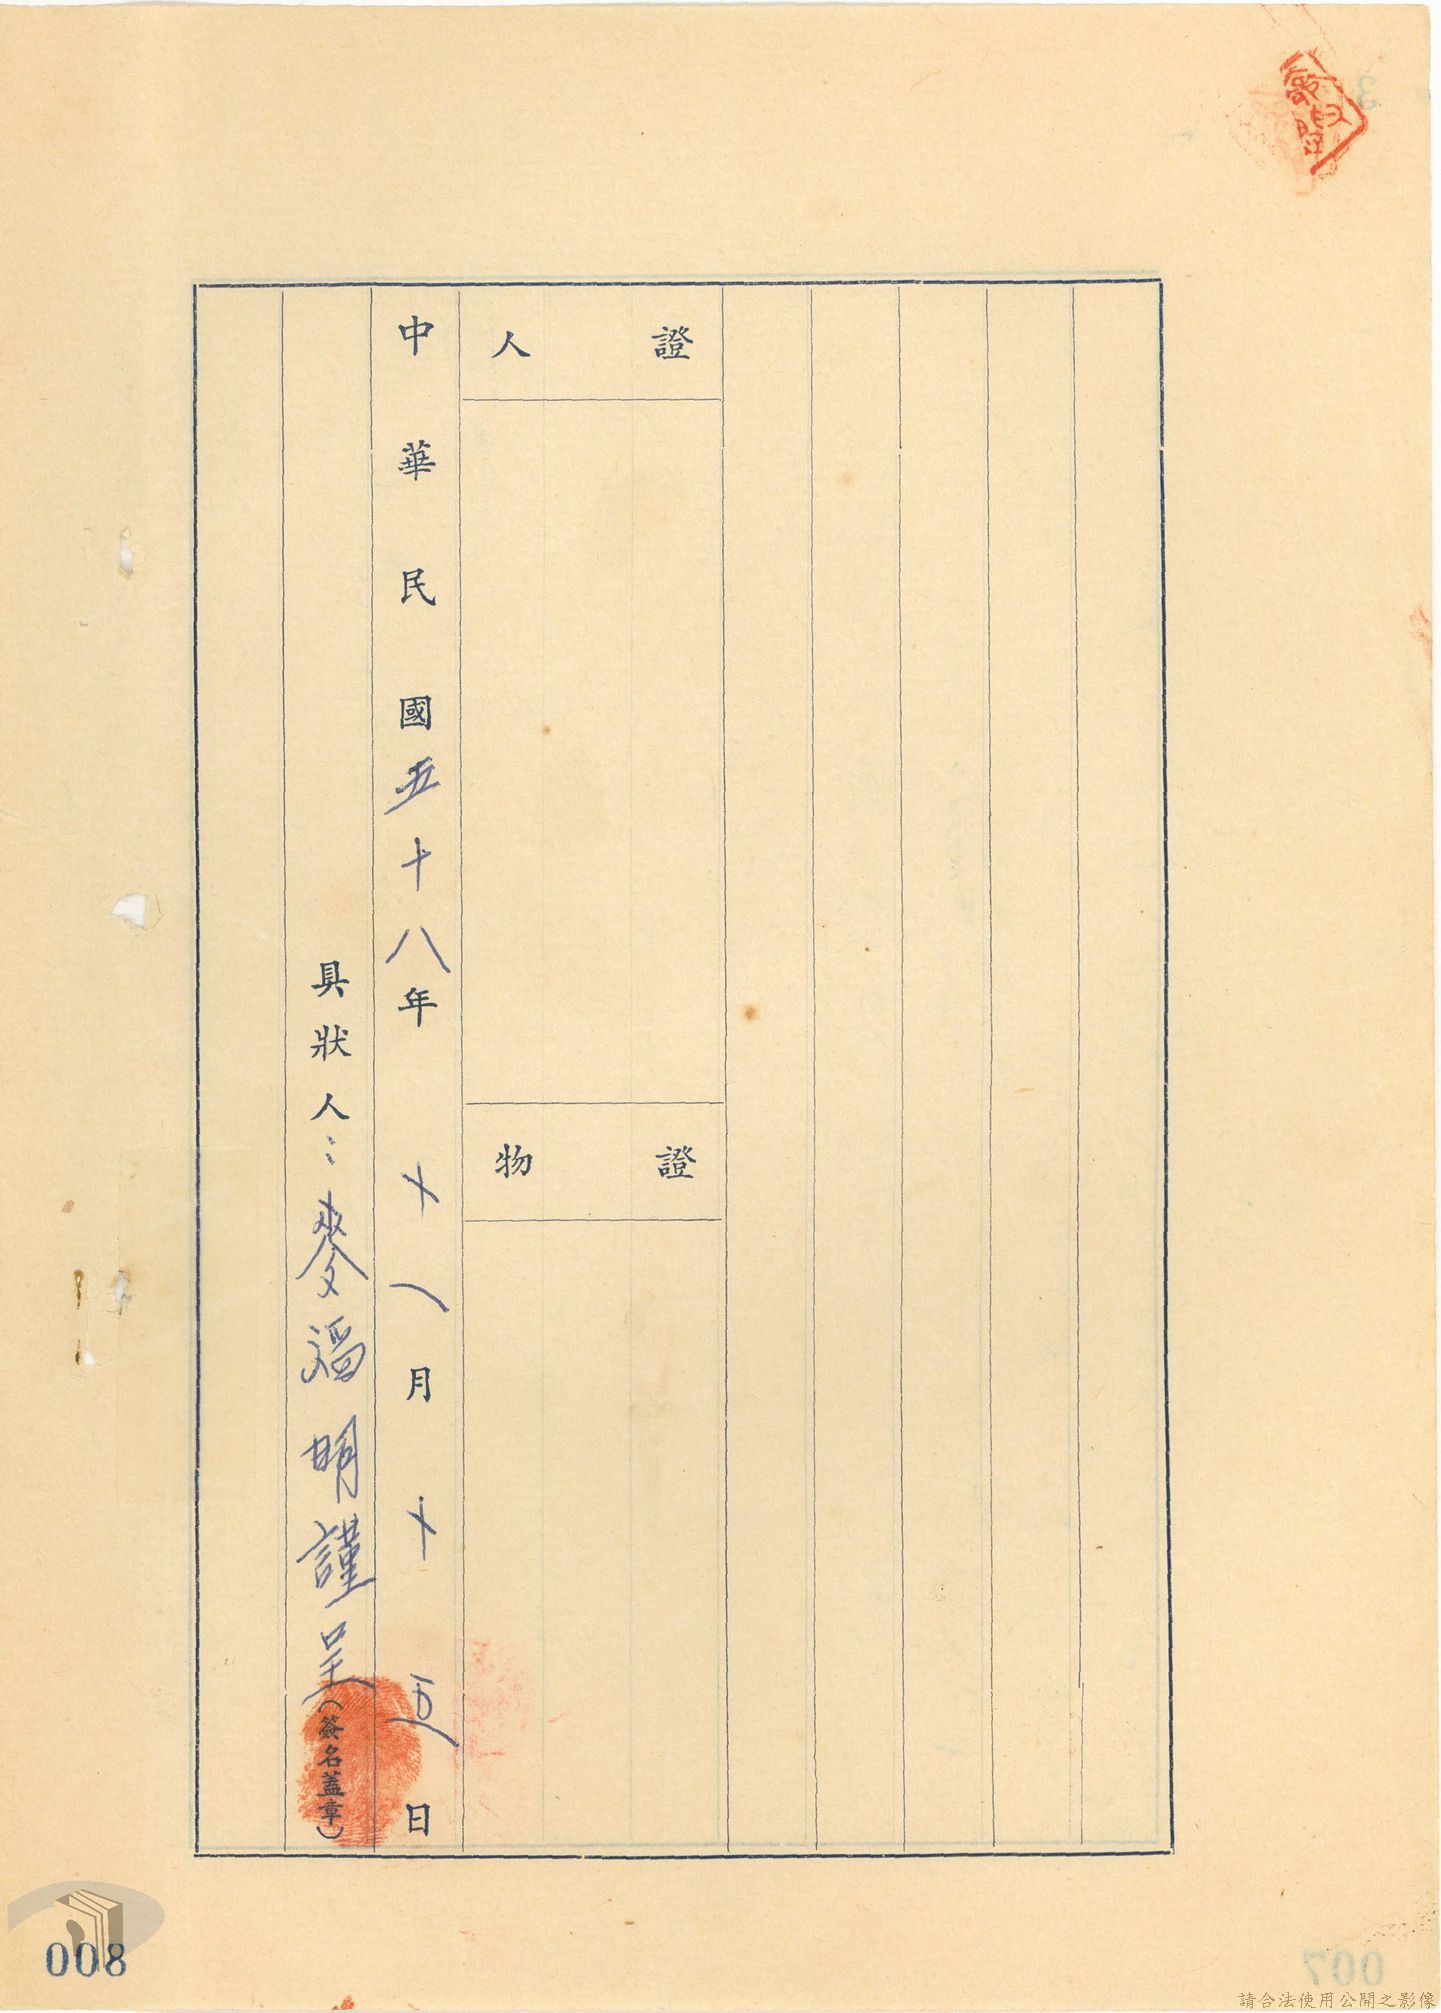 證人
證物
中華民國五十八年十一月十五日
具狀人：麥福明謹呈(簽名蓋章)
008
007
請合法使用公開之影像